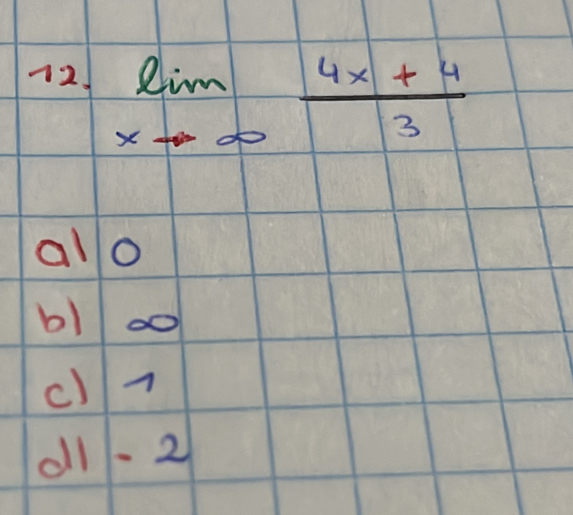 12. lim 4x + 4
x → ∞ 3
a) 0
b) ∞
c) 1
d) - 2